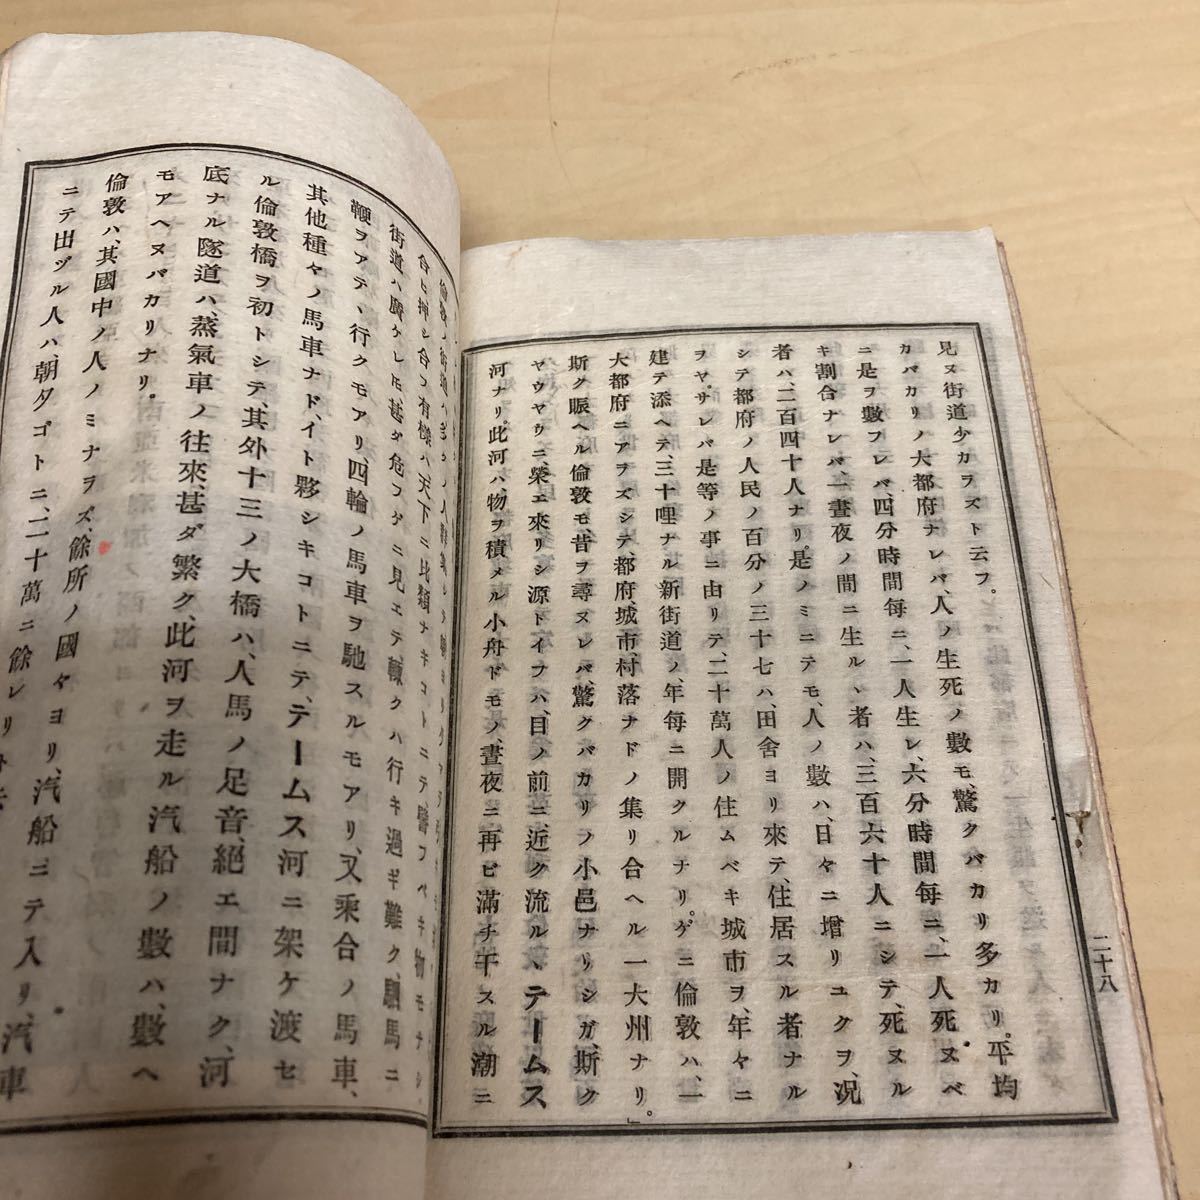 見ヌ街道少カヲズト云フ。
カバカリノ大都府ナレバ、人ノ生死ノ數モ、驚クバカリ多カリ。平均
ニ是ヲ數フレバ、四分時間毎ニ、一人生レ、六分時間毎ニ、一人死ヌベ
キ割合ナレバ、一晝夜ノ間ニ生ルヽ者ハ、三百六十人ニシテ、死ヌル
者ハ、二百四十人ナリ。是ノミニテモ、人ノ數ハ、日々ニ增リユクヲ、況
シテ都府ノ人民ノ百分ノ三十七ハ、田舍ヨリ來テ、住居スル者ナル
ヲヤ。サレバ是等ノ事ニ由リテ、二十萬人ノ住ムベキ城市ヲ、年々ニ
建テ添ヘテ、三十哩ナル新街道ノ、年毎ニ開クルナリ。ゲニ倫敦ハ、一
大都府ニアヲズシテ、都府、城市、村落ナドノ集リ合ヘル一大州ナリ。」
斯ク賑ヘル倫敦モ、昔ヲ尋ヌレバ、驚クバカリノ小邑ナリシガ、斯ク
ヤウヤウニ榮エ來リシ源トイフハ、目ノ前ニ近ク流ルヽテームス
河ナリ。此河ハ物ヲ積メル小舟ドモノ、晝夜ニ再ビ滿チ干スル潮ニ
二十八
合ヒ押シ合フ有樣ハ、天下ニ比類ナキコトニテ、譬フベキ物モナシ。
街道ハ廣ケレドモ、甚ダ危フゲニ見エテ、轅クハ行キ過ギ難ク、騎馬ニ
鞭ヲアテヽ行クモアリ、四輪ノ馬車ヲ馳スルモアリ、又乘合ノ馬車、
其他種々ノ馬車ナド、イト夥シキコトニテ、テームス河ニ架ケ渡セ
ル倫敦橋ヲ初トシテ、其外十三ノ大橋ハ、人馬ノ足音、絕エ間ナク、河
底ナル隧道ハ、蒸氣車ノ往來甚ダ繁ク、此河ヲ走ル汽船ノ數ハ、數ヘ
モアヘヌバカリナリ。
倫敦ハ、其國中ノ人ノミナヲズ、餘所ノ國々ヨリ、汽船ニテ入リ、汽車
ニテ出ヅル人ハ、朝夕ゴトニ、二十萬ニ餘レリ